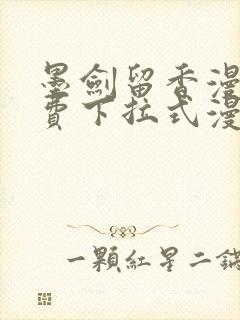 墨劍留香漫
費下拉式漫
一顆紅星二鍋